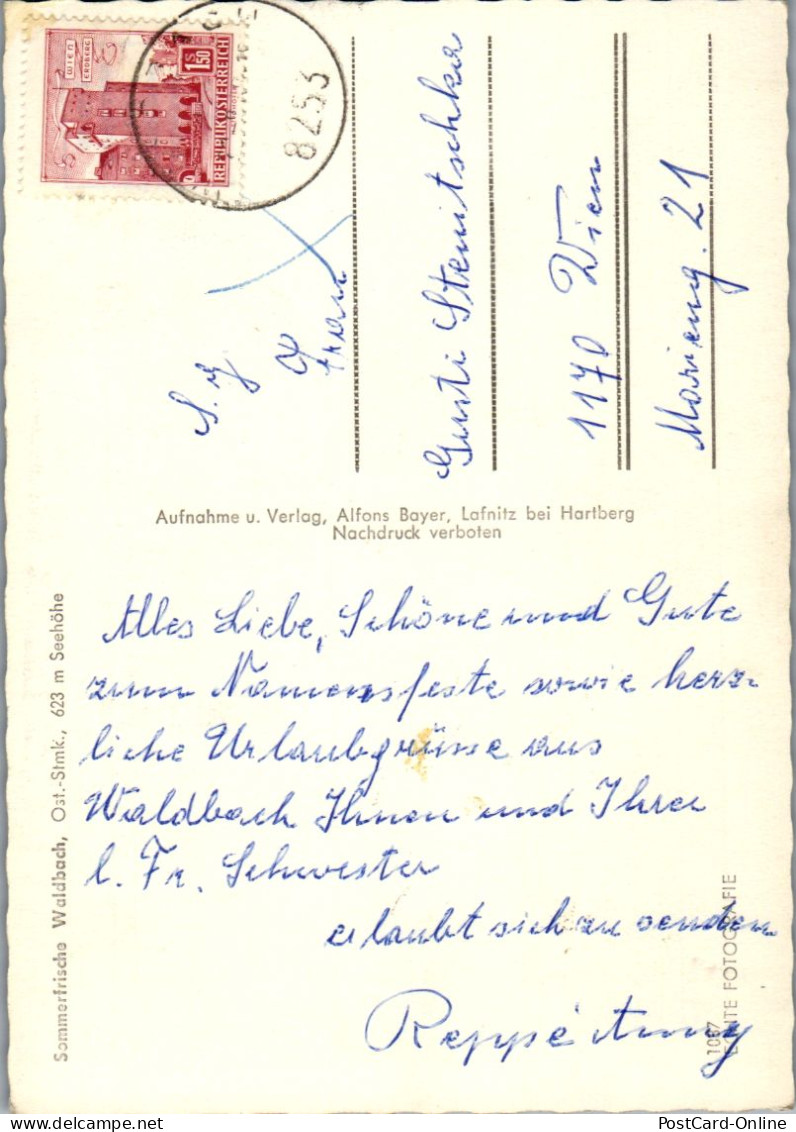 WIEN
ERDBERG
1 S
1.50
REPUBLIK ÖSTERREICH
8253
S. g
Frau
Gusti Stenitschka
1170 Wien
Marieng. 21
Aufnahme u. Verlag, Alfons Bayer, Lafnitz bei Hartberg
Nachdruck verboten
Sommerfrische Waldbach, Ost.-Stmk., 623 m Seehöhe
Alles Liebe, Schöne und Gute
zum Namensfeste sowie herz-
liche Urlaubgrüsse aus
Waldbach Ihnen und Ihrer
l. Fr. Schwester
erlaubt sich zu senden
Reppé
1087
ECHTE FOTOGRAFIE
PostCard-Online